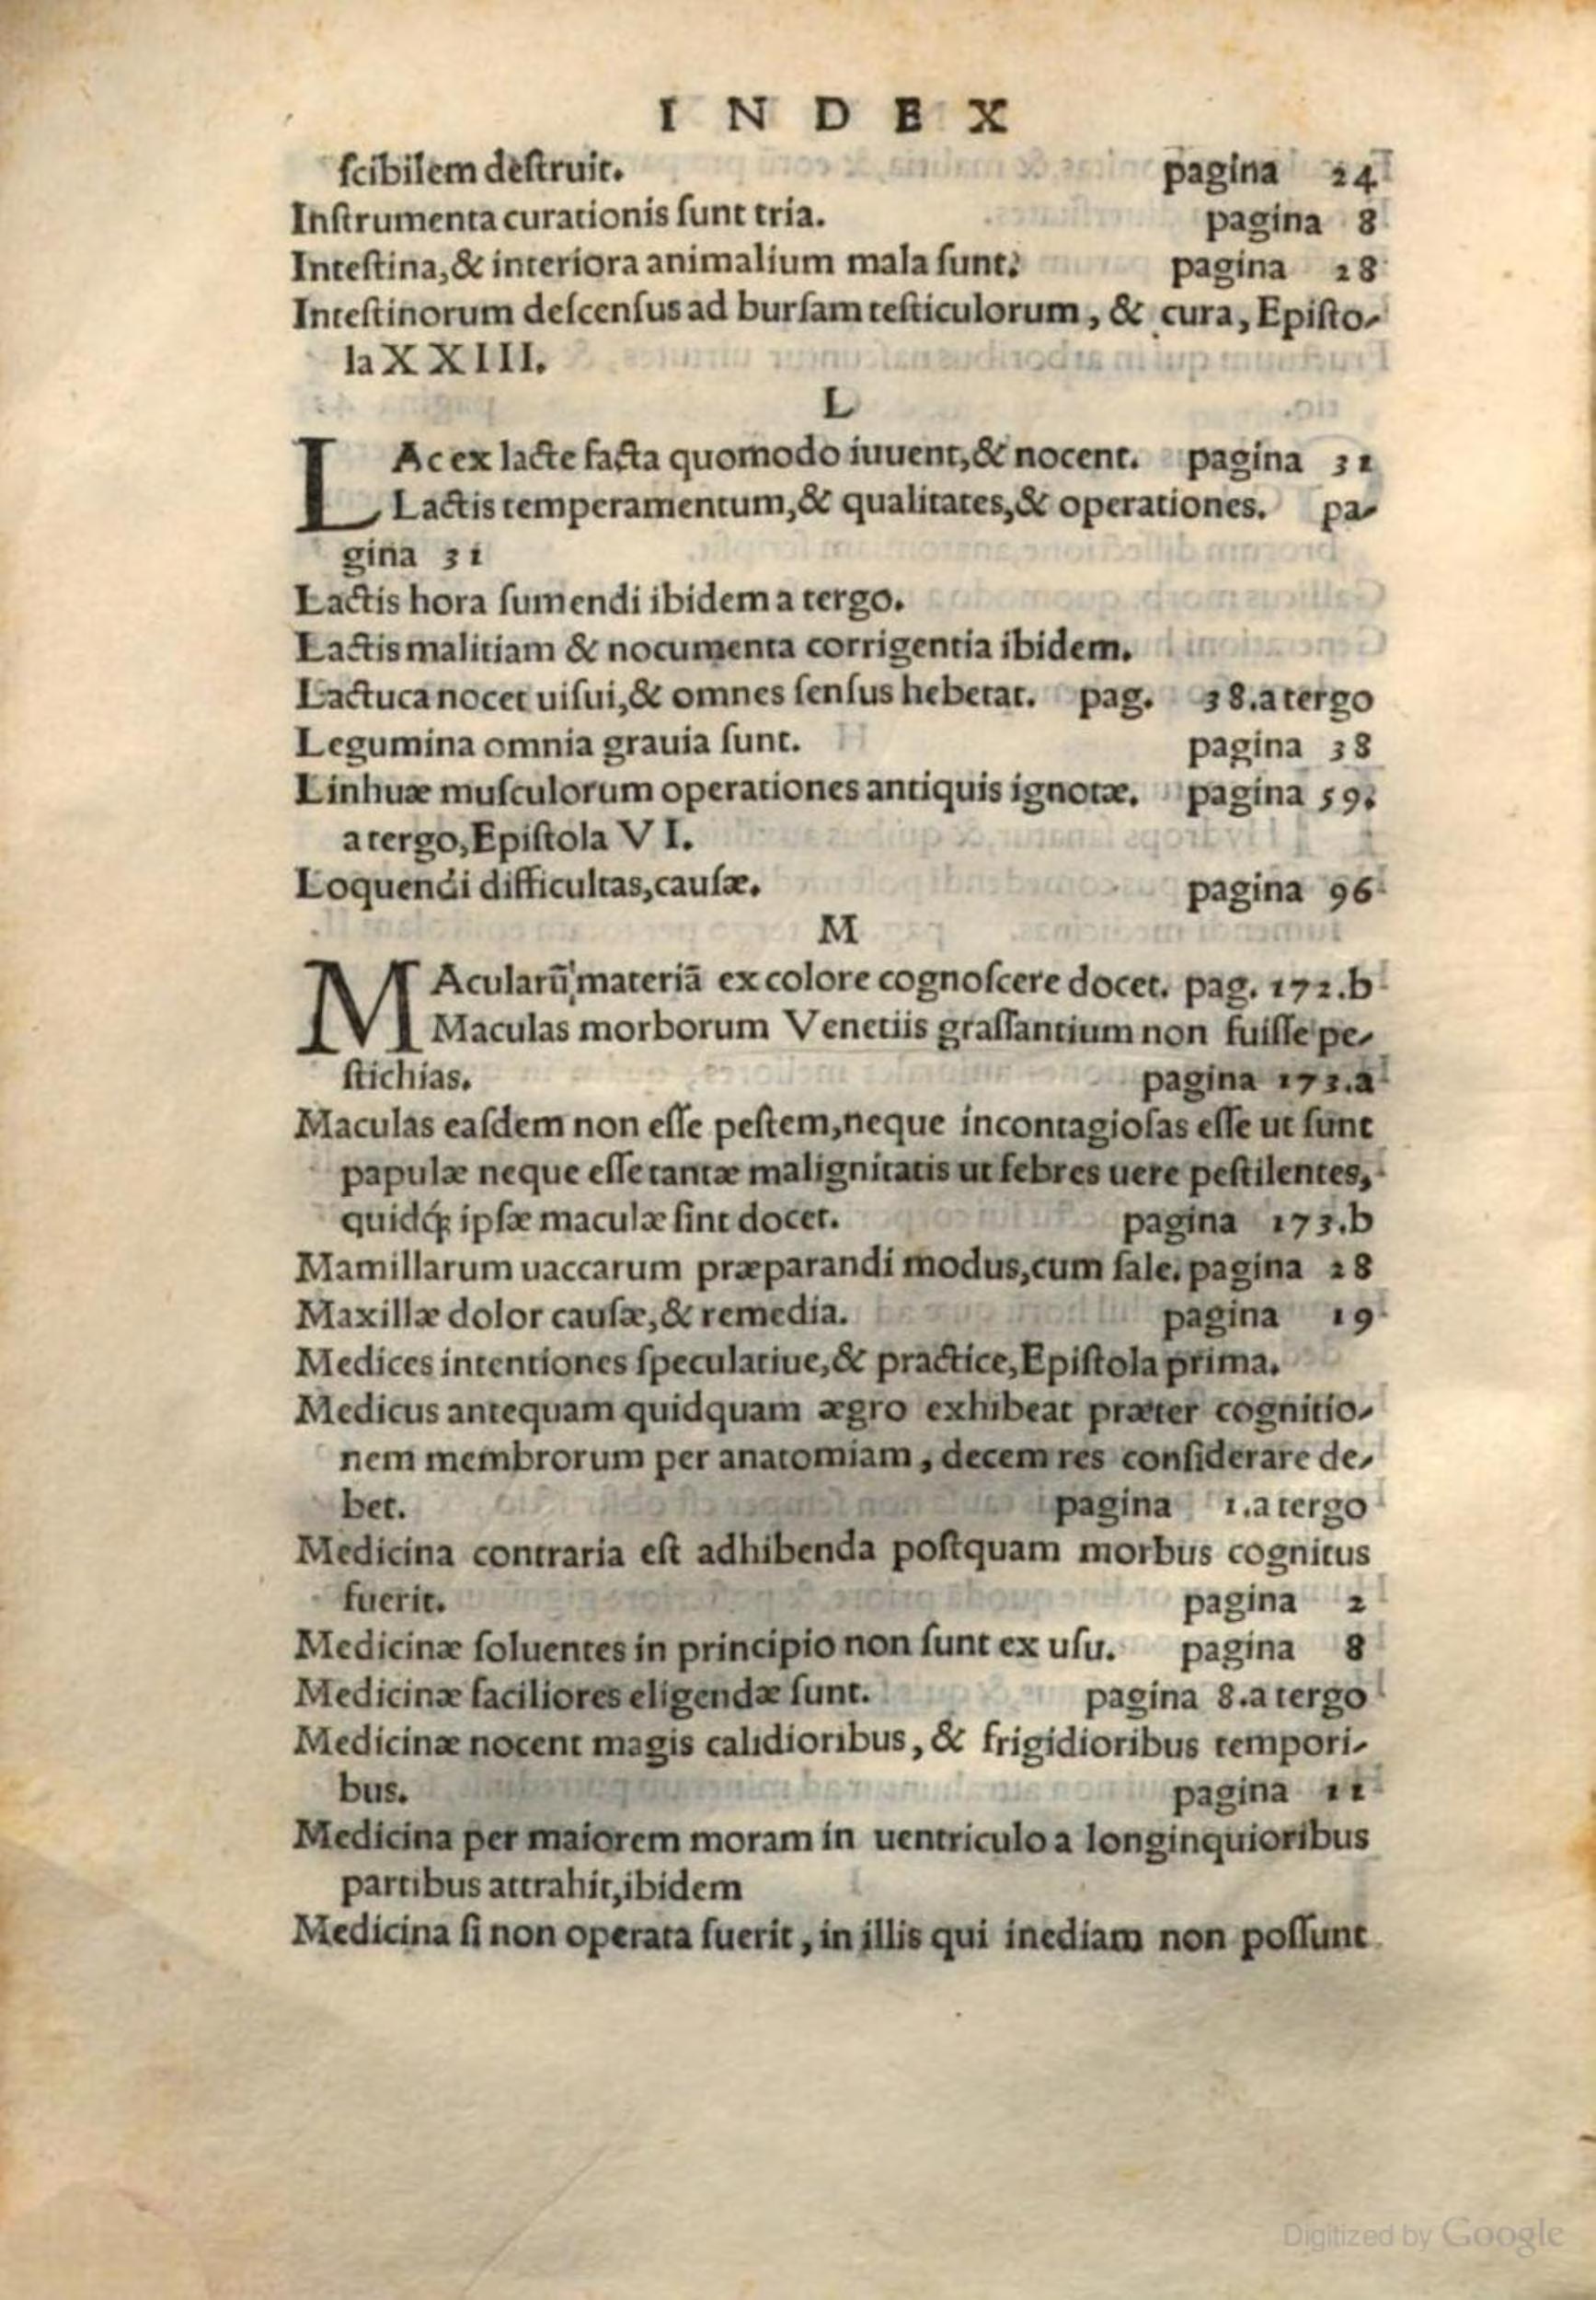 INDEX
ſcibilem deſtruit. pagina 24
Inſtrumenta curationis ſunt tria. pagina 8
Inteſtina,& interiora animalium mala ſunt. pagina 28
Inteſtinorum deſcenſus ad burſam teſticulorum, & cura, Epiſto-
la XXIII.
L
LAc ex lacte facta quomodo iuuent,& nocent. pagina 31
Lactis temperamentum,& qualitates,& operationes. pa-
gina 31
Lactis hora ſumendi ibidem a tergo.
Lactis malitiam & nocumenta corrigentia ibidem.
Lactuca nocet uiſui,& omnes ſenſus hebetat. pag. 38.a tergo
Legumina omnia grauia ſunt. pagina 38
Linhuæ muſculorum operationes antiquis ignotæ. pagina 59.
a tergo,Epiſtola VI.
Loquendi difficultas,cauſæ. pagina 96
M
MAcularũ materiã ex colore cognoſcere docet. pag. 172.b
Maculas morborum Venetiis graſſantium non fuiſſe pe-
ſtichias. pagina 173.a
Maculas eaſdem non eſſe peſtem,neque incontagioſas eſſe ut ſunt
papulæ neque eſſe tantæ malignitatis ut febres uere peſtilentes,
quidq́; ipſæ maculæ ſint docet. pagina 173.b
Mamillarum uaccarum præparandi modus,cum ſale. pagina 28
Maxillæ dolor cauſæ,& remedia. pagina 19
Medices intentiones ſpeculatiue,& practice,Epiſtola prima.
Medicus antequam quidquam ægro exhibeat præter cognitio-
nem membrorum per anatomiam, decem res conſiderare de-
bet. pagina 1.a tergo
Medicina contraria eſt adhibenda poſtquam morbus cognitus
fuerit. pagina 2
Medicinæ ſoluentes in principio non ſunt ex uſu. pagina 8
Medicinæ faciliores eligendæ ſunt. pagina 8.a tergo
Medicinæ nocent magis calidioribus, & frigidioribus tempori-
bus. pagina 11
Medicina per maiorem moram in uentriculo a longinquioribus
partibus attrahit,ibidem
Medicina ſi non operata fuerit, in illis qui inediam non poſſunt
Digitized by Google